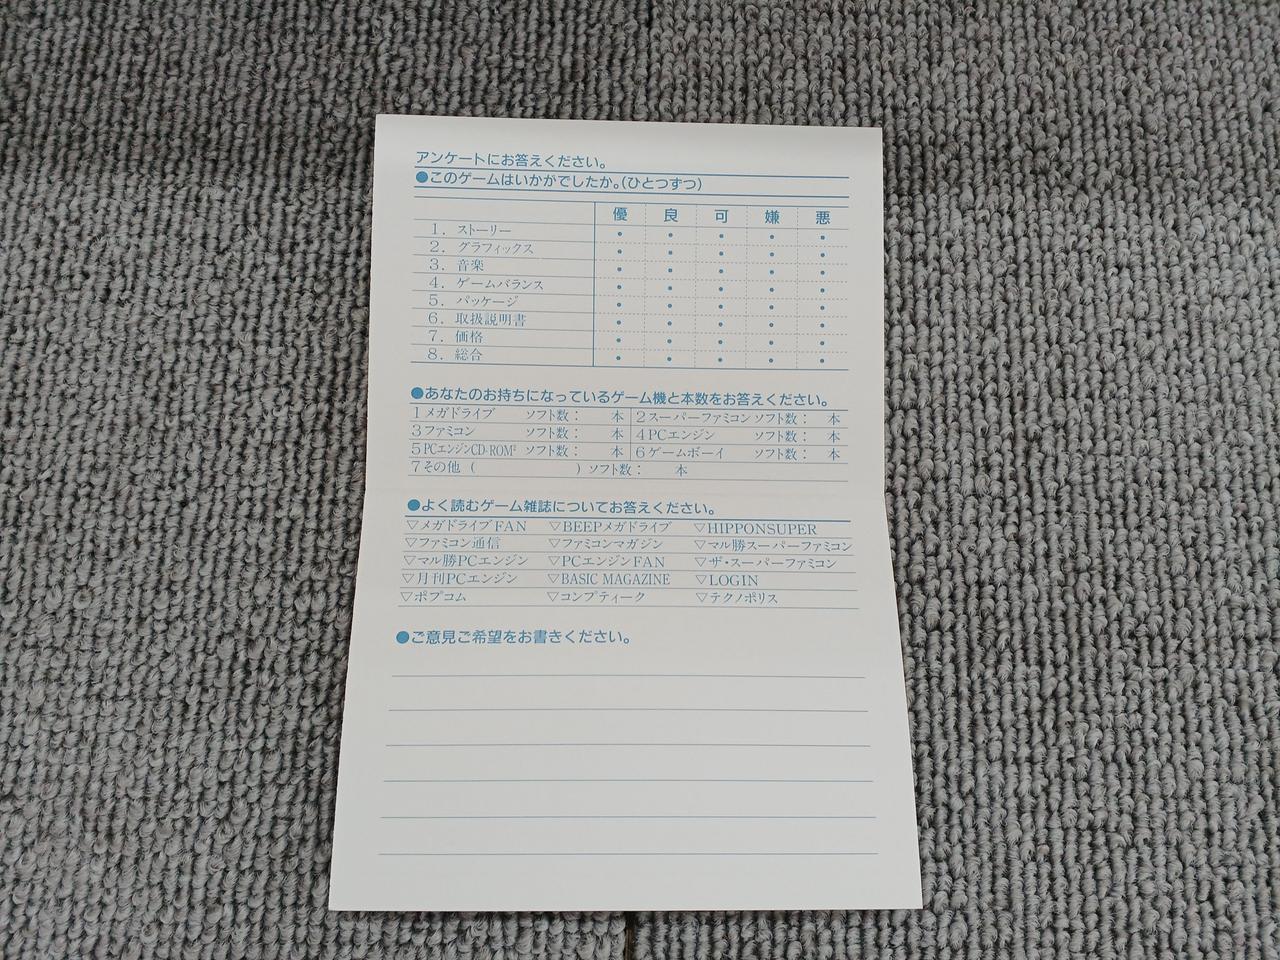 アンケートにお答えください。
●このゲームはいかがでしたか。(ひとつずつ)
優 良 可 嫌 悪
1. ストーリー ・ ・ ・ ・ ・
2. グラフィックス ・ ・ ・ ・ ・
3. 音楽 ・ ・ ・ ・ ・
4. ゲームバランス ・ ・ ・ ・ ・
5. パッケージ ・ ・ ・ ・ ・
6. 取扱説明書 ・ ・ ・ ・ ・
7. 価格 ・ ・ ・ ・ ・
8. 総合 ・ ・ ・ ・ ・
●あなたのお持ちになっているゲーム機と本数をお答えください。
1メガドライブ ソフト数: 本 2スーパーファミコン ソフト数: 本
3ファミコン ソフト数: 本 4PCエンジン ソフト数: 本
5PCエンジンCD-ROM² ソフト数: 本 6ゲームボーイ ソフト数: 本
7その他 ( ) ソフト数: 本
●よく読むゲーム雑誌についてお答えください。
▽メガドライブFAN ▽BEEPメガドライブ ▽HIPPONSUPER
▽ファミコン通信 ▽ファミコンマガジン ▽マル勝スーパーファミコン
▽マル勝PCエンジン ▽PCエンジンFAN ▽ザ・スーパーファミコン
▽月刊PCエンジン ▽BASIC MAGAZINE ▽LOGIN
▽ポプコム ▽コンプティーク ▽テクノポリス
●ご意見ご希望をお書きください。